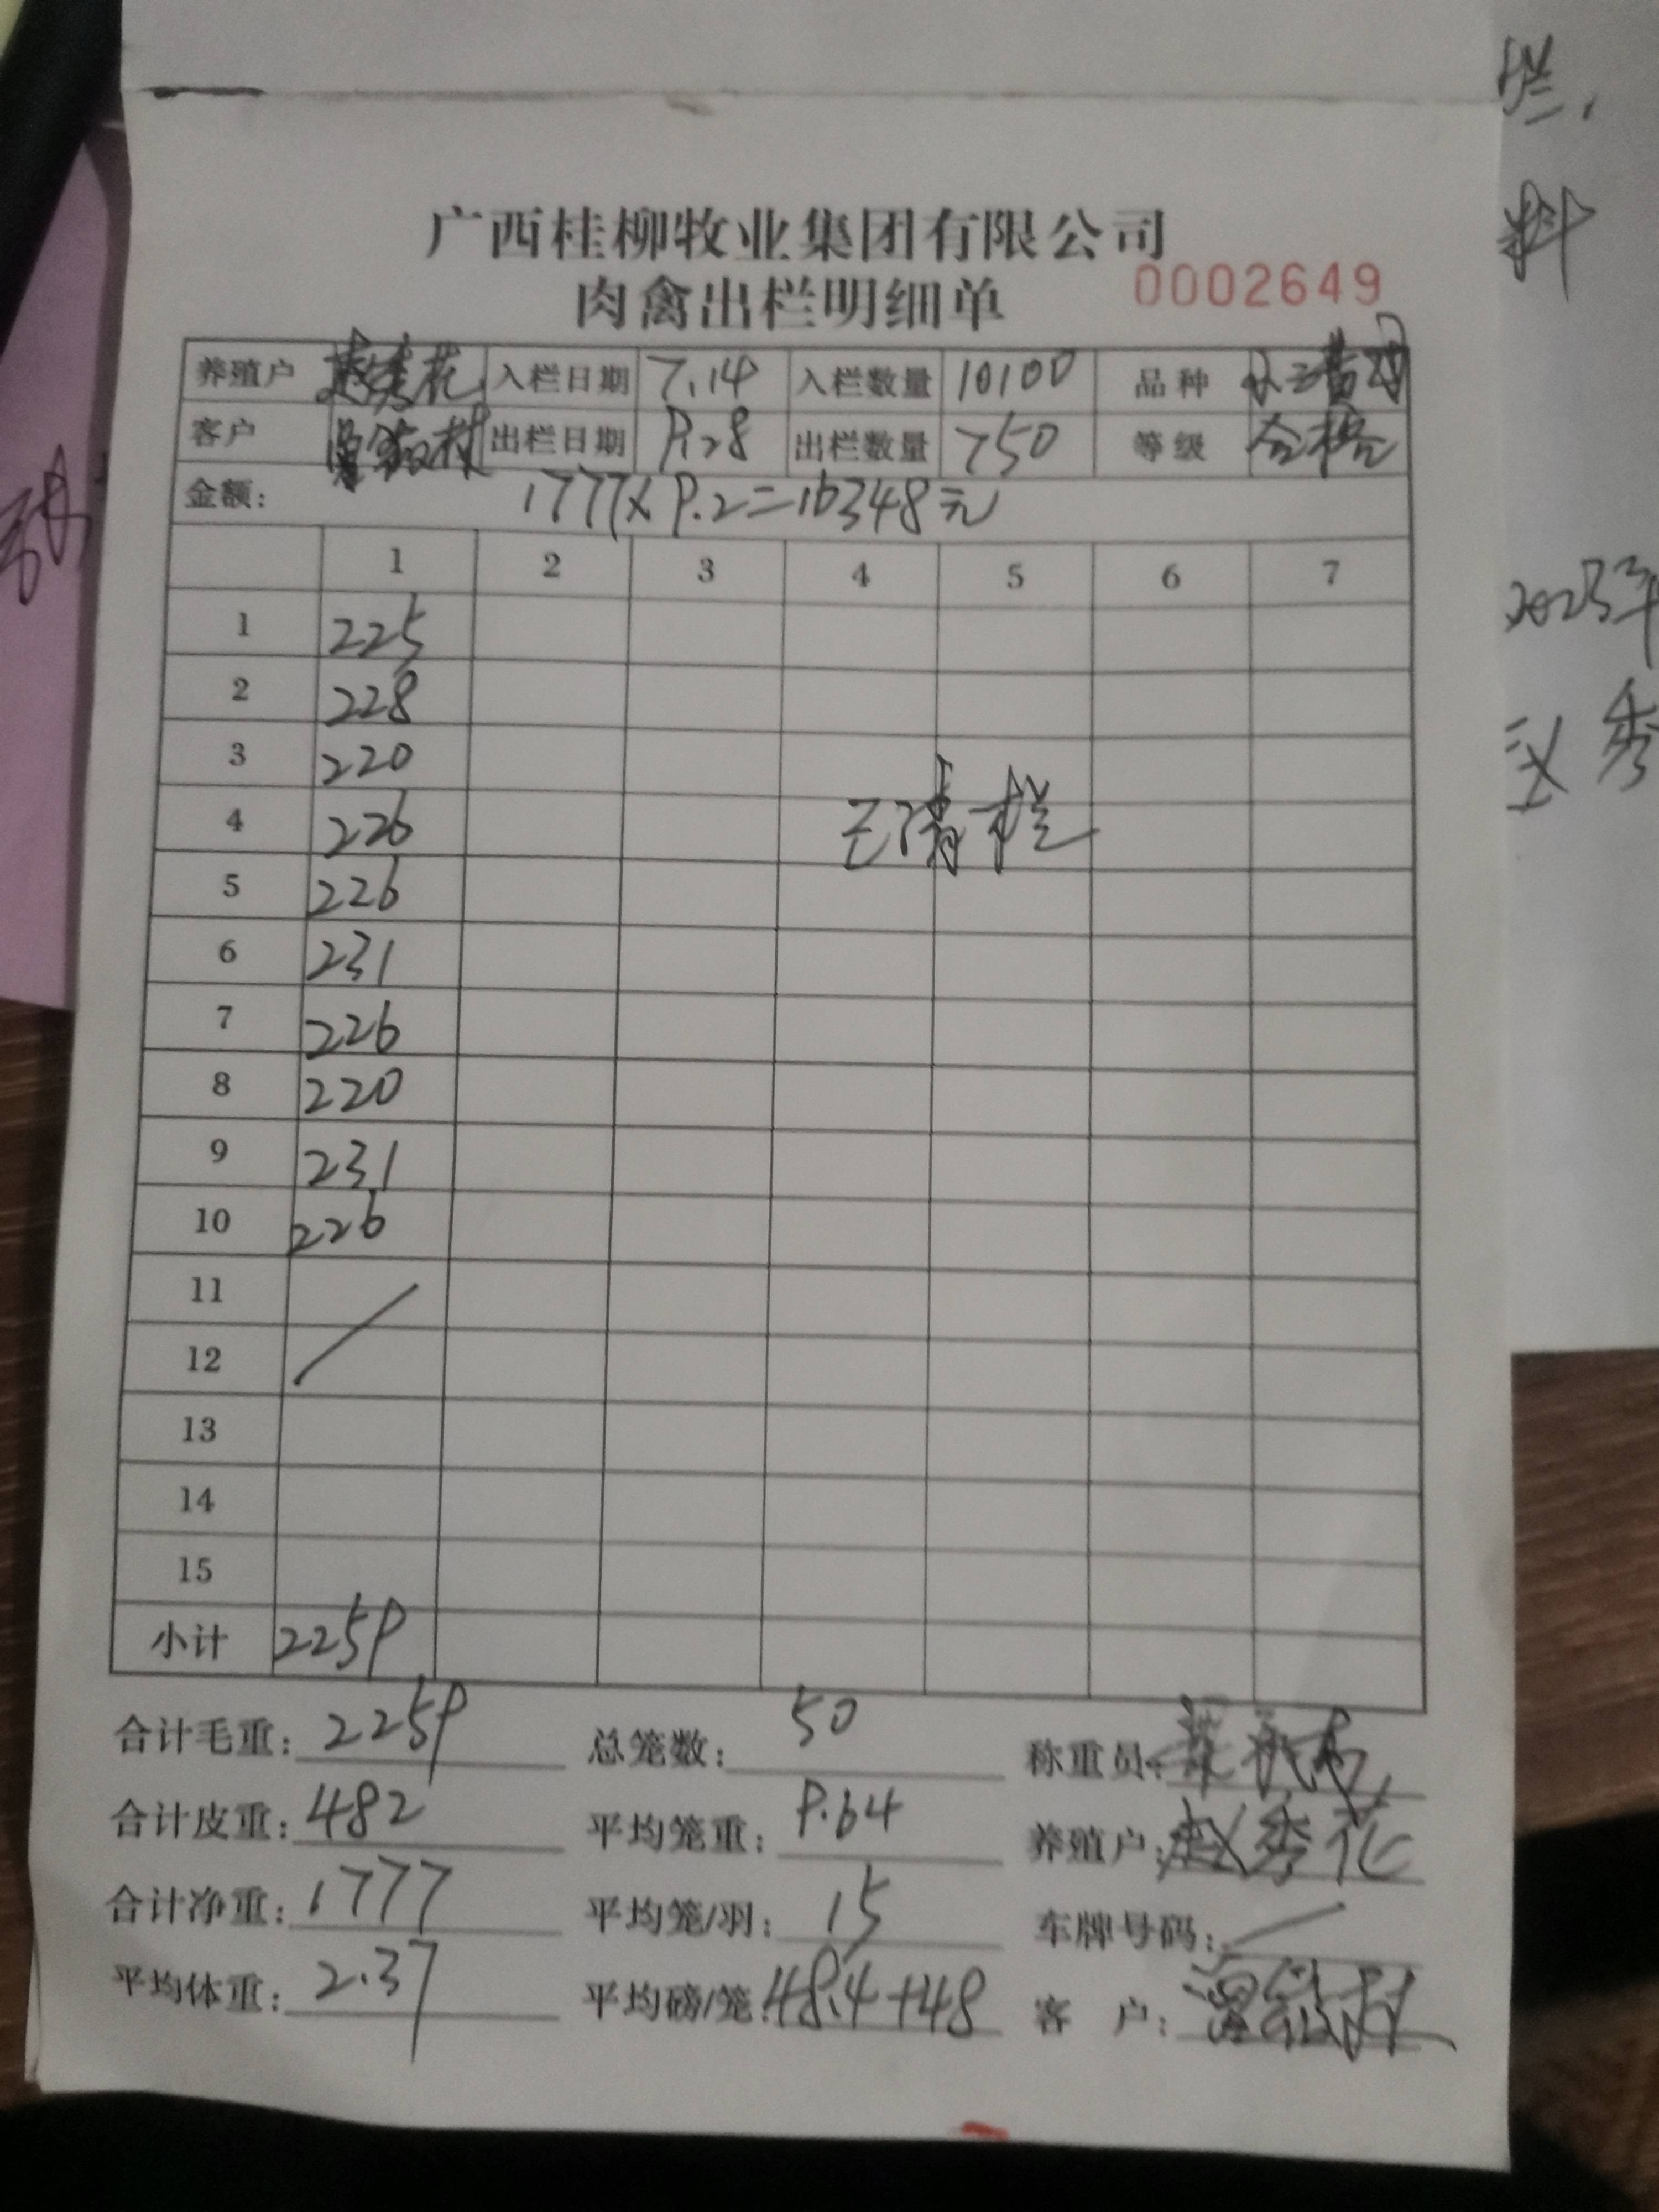 广西桂柳牧业集团有限公司
肉禽出栏明细单 0002649
养殖户 赵秀花 入栏日期 7.14 入栏数量 10100 品种
客户 出栏日期 9.28 出栏数量 750 等级 合格
金额: 1777×9.2=16348元
1 2 3 4 5 6 7
1 225
2 228
3 220
4 226 已清栏
5 226
6 231
7 226
8 220
9 231
10 226
11
12
13
14
15
小计 2259
合计毛重: 2259 总笼数: 50 称重员:
合计皮重: 482 平均笼重: 9.64 养殖户: 赵秀花
合计净重: 1777 平均笼/羽: 15 车牌号码:
平均体重: 2.37 平均磅/笼: 48.4+48 客 户:
栏.
料
2023年
秀